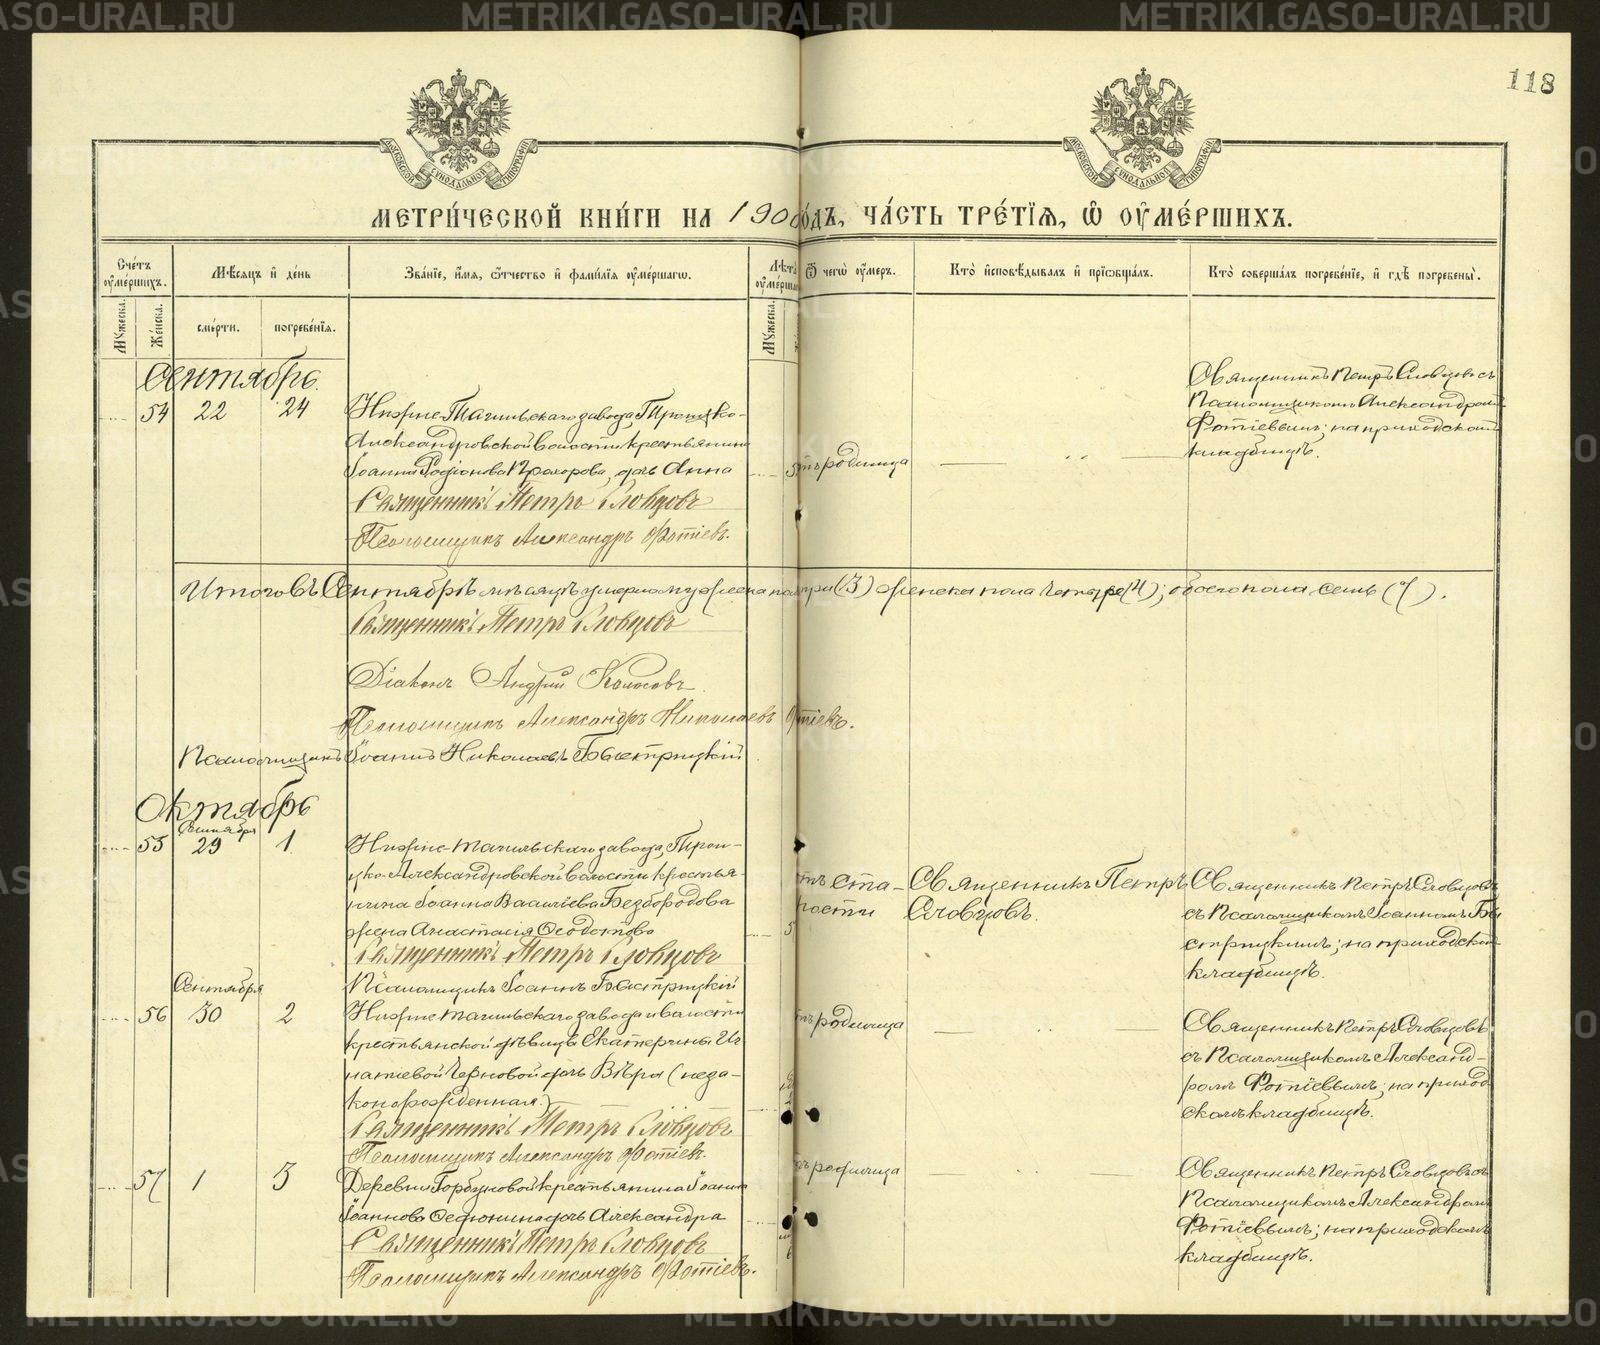 118
МЕТРИ́ЧЕСКОЙ КНИ́ГИ НА 190
О́ДЪ, ЧА́СТЬ ТРЕ́ТІѦ, Ѿ ОУ҆МЕ́РШИХЪ.
Сче́тъ оу҆ме́ршихъ.
Мѣ́сяцъ и҆ де́нь
Зва́нїе, и҆́мѧ, ѻ҆́тчество и҆ фами́лїѧ оу҆ме́ршагѡ.
Ѿ чегѡ̀ оу҆́меръ.
Кто̀ и҆сповѣ́дывалъ и҆ прїѡбща́лъ.
Кто̀ соверша́лъ погребе́нїе, и҆ гдѣ̀ погребены̀.
Му́жеска.
Же́нска.
сме́рти.
погребе́нїѧ.
Му́жеска.
Сентябрь.
54 22 24
Нижне-Тагильскаго завода, Троицко-
Александровской волости крестьянина
Іоанна Родіонова Прохорова, дочь Анна
Священникъ Петръ Словцовъ
Псаломщикъ Александръ Фотіевъ.
родимца
Священникъ Петръ Словцовъ съ
Псаломщикомъ Александромъ
Фотіевымъ; на приходскомъ
кладбищѣ.
Итого въ Сентябрѣ мѣсяцѣ умерло мужеска пола три (3) женска пола четыре (4); обоего пола семь (7).
Священникъ Петръ Словцовъ
Діаконъ Андрей Колосовъ.
Псаломщикъ Александръ Николаевъ Фотіевъ.
Псаломщикъ Іоаннъ Николаевъ Быстрицкій
Октябрь
Сентября
55 29 1
Нижне-Тагильскаго завода, Трои-
цко-Александровской волости крестья-
нина Іоанна Василіева Безбородова
жена Анастасія Ѳеодотова
Священникъ Петръ Словцовъ
Псаломщикъ Іоаннъ Быстрицкій
ста-
рости
Священникъ Петръ
Словцовъ.
Священникъ Петръ Словцовъ
съ Псаломщикомъ Іоанномъ Бы-
стрицкимъ; на приходскомъ
кладбищѣ.
Сентября
56 30 2
Нижне-Тагильскаго завода и волости
крестьянской дѣвицы Екатерины Иг-
натіевой Черновой дочь Вѣра (неза-
коннорожденная)
Священникъ Петръ Словцовъ
Псаломщикъ Александръ Фотіевъ.
родимца
Священникъ Петръ Словцовъ
съ Псаломщикомъ Александ-
ромъ Фотіевымъ; на приход-
скомъ кладбищѣ.
57 1 3
Деревни Горбуновой крестьянина Іоанна
Іоаннова Ѳедюнина дочь Александра
Священникъ Петръ Словцовъ
Псаломщикъ Александръ Фотіевъ.
родимца
Священникъ Петръ Словцовъ съ
Псаломщикомъ Александромъ
Фотіевымъ; на приходскомъ
кладбищѣ.
METRIKI.GASO-URAL.RU